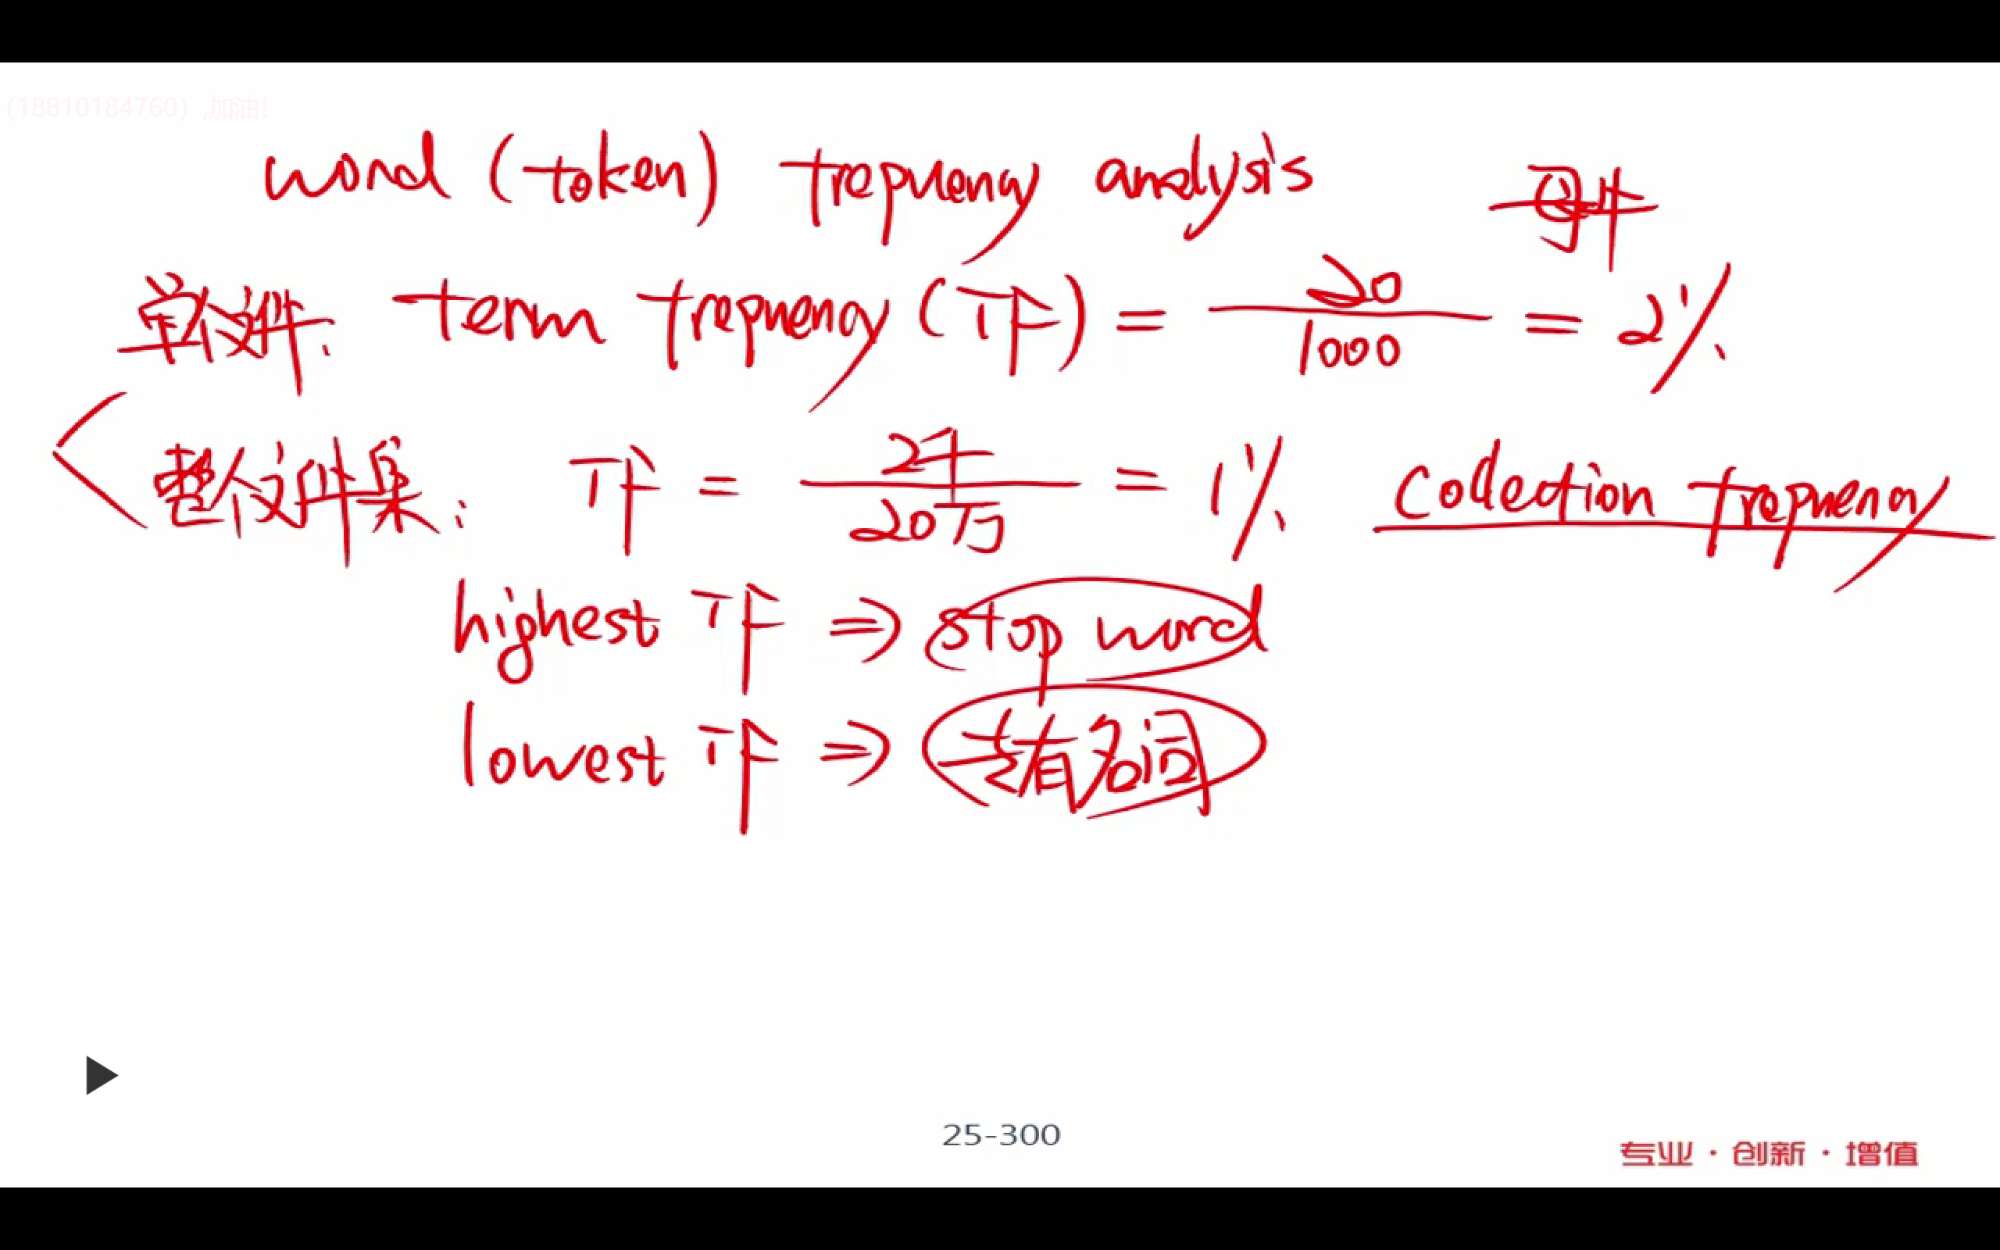 (18810184760) 加油!
word (token) frequency analysis
单个文件: term frequency (TF) = 20/1000 = 2%
整个文件集: TF = 2千/20万 = 1% Collection frequency
highest TF ⇒ stop word
lowest TF ⇒ 专有名词
25-300
专业·创新·增值